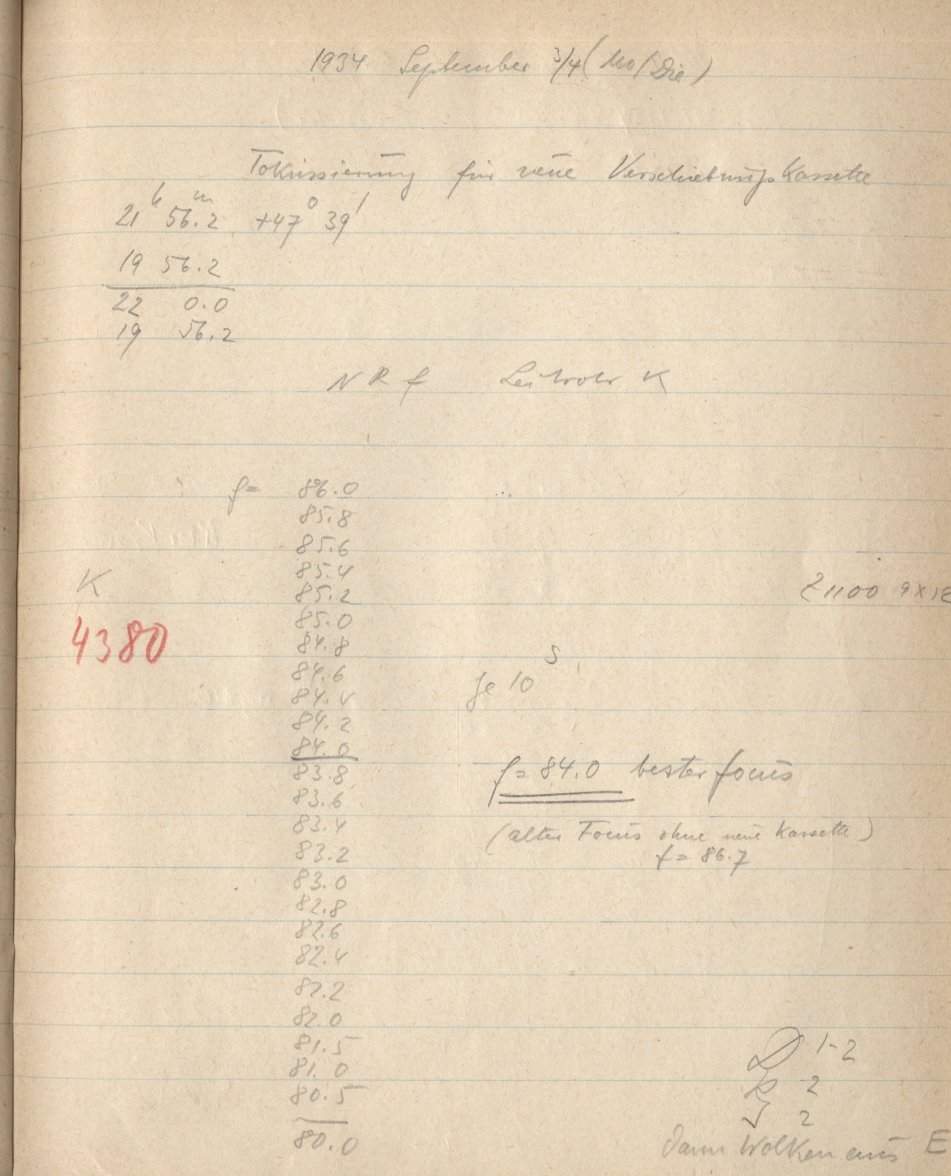 1934 September 3/4 (Mo/Die)
Fokussierung für neue Verschiebungskassette
21h 56.2m +47° 39'
19 56.2
22 0.0
19 56.2
N R f Leitrohr K
f= 86.0
85.8
85.6
85.4
K 85.2 Z1100 9x12
85.0
4380 84.8
84.6
84.4 je 10s
84.2
84.0
83.8 f= 84.0 bester focus
83.6
83.4 (alter Focus ohne neue Kassette)
83.2 f= 86.7
83.0
82.8
82.6
82.4
82.2
82.0
81.5 D 1-2
81.0
80.5 2
2
80.0 dann Wolken aus E